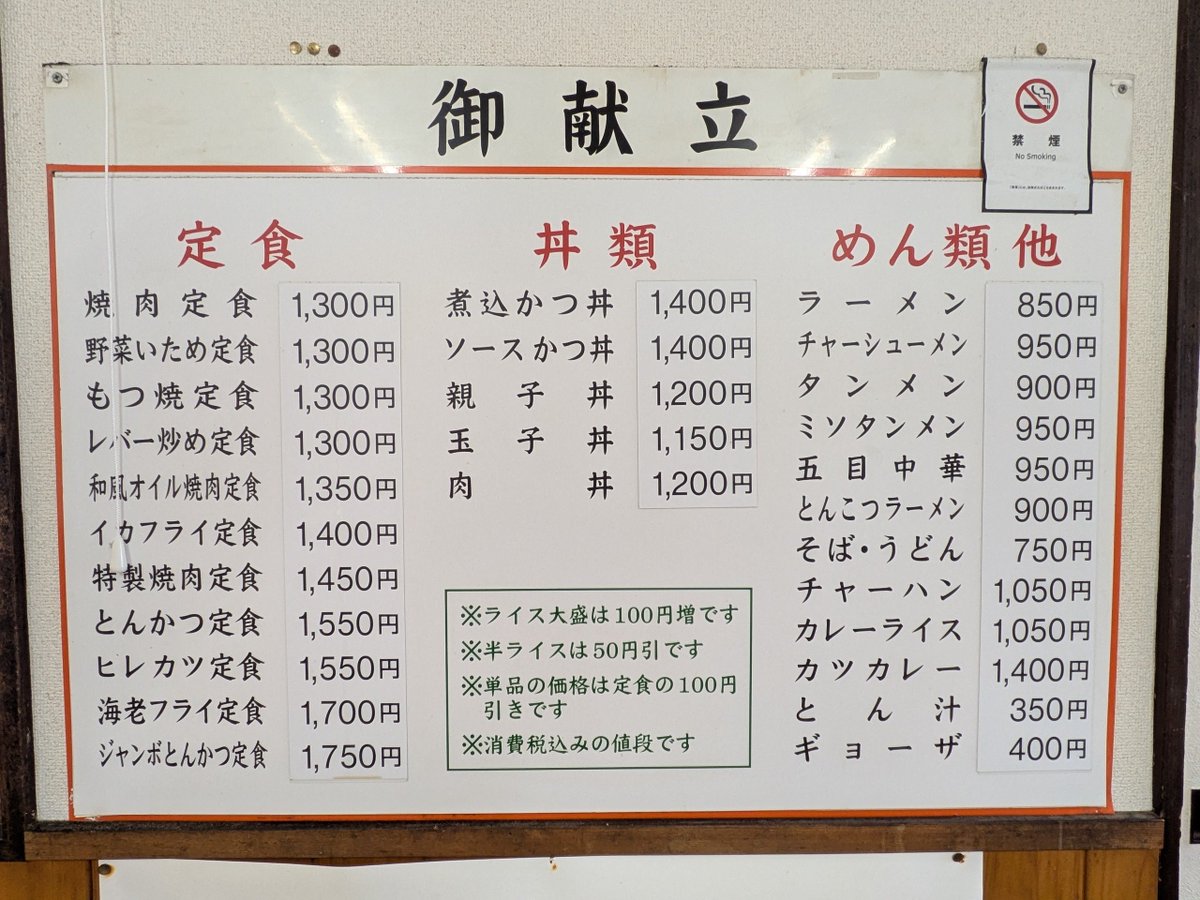 御献立
禁煙
No Smoking
定食
焼肉定食 1,300円
野菜いため定食 1,300円
もつ焼定食 1,300円
レバー炒め定食 1,300円
和風オイル焼肉定食 1,350円
イカフライ定食 1,400円
特製焼肉定食 1,450円
とんかつ定食 1,550円
ヒレカツ定食 1,550円
海老フライ定食 1,700円
ジャンボとんかつ定食 1,750円
丼類
煮込かつ丼 1,400円
ソースかつ丼 1,400円
親子丼 1,200円
玉子丼 1,150円
肉丼 1,200円
※ライス大盛は100円増です
※半ライスは50円引です
※単品の価格は定食の100円
引きです
※消費税込みの値段です
めん類他
ラーメン 850円
チャーシューメン 950円
タンメン 900円
ミソタンメン 950円
五目中華 950円
とんこつラーメン 900円
そば・うどん 750円
チャーハン 1,050円
カレーライス 1,050円
カツカレー 1,400円
とん汁 350円
ギョーザ 400円